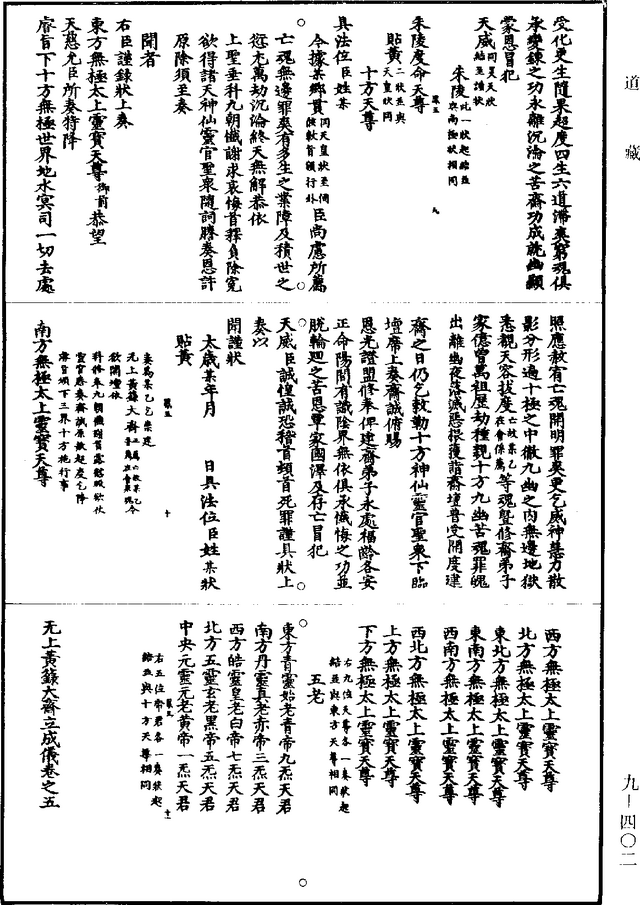 道藏
受化更生隨果超度四生六道滯爽窮魂俱
承變鍊之功永離沉淪之苦齋功成就幽顯
蒙恩冒犯
天威同昊天狀結至謹狀
朱陵此一狀起結並與南極狀相同
朱陵度命天尊
貼黃二狀並與天皇狀同
十方天尊
具法位臣姓某
今據某鄉貫同天皇狀至俯伏款首領行外臣尚慮所薦
亡魂無邊罪爽有多生之業障及積世之
愆尤萬劫沉淪終天無解恭依
上聖垂科九朝懺謝求哀悔首釋負除冤
欲得諸天神仙靈官聖衆隨詞勝奏恩許
原除須至奏
聞者
右臣謹錄狀上奏
東方無極太上靈寶天尊御前恭望
天慈允臣所奏特降
睿旨下十方無極世界地水冥司一切去處
照應赦宥亡魂開明罪爽更乞威神慧力散
影分形遍十極之中徹九幽之內無邊地獄
悉覩天容拔度亡故某乙在會係薦等魂暨修齋弟子
家億曾萬祖歷劫種親十方九幽苦魂罪魄
出離幽夜落滅惡根獲詣齋壇普受開度建
齋之日仍乞敕勒十方神仙靈官聖衆下臨
壇席上奏齋誠俯賜
恩光證盟修奉俾建齋弟子永處福齡各安
正命陽間有識陰界無依俱承懺悔之功並
脫輪迴之苦恩覃家國澤及存亡冒犯
天威臣誠惶誠恐稽首頓首死罪謹具狀上
奏以
聞謹狀
太歲某年月日具法位臣姓某狀
貼黃
奏爲某乞崇建
无上黃籙大齋
欲開壇依
科修奉九朝懺謝首露愆瑕欲伏
靈官奏齋誠原赦起度乞降
睿旨頒下三界十方施行事
南方無極太上靈寶天尊
西方無極太上靈寶天尊
北方無極太上靈寶天尊
東北方無極太上靈寶天尊
東南方無極太上靈寶天尊
西南方無極太上靈寶天尊
西北方無極太上靈寶天尊
上方無極太上靈寶天尊
下方無極太上靈寶天尊
右九位天尊各一奏狀起結並與東方天尊相同
五老
東方青靈始老青帝九炁天君
南方丹靈真老赤帝三炁天君
西方皓靈皇老白帝七炁天君
北方五靈玄老黑帝五炁天君
中央元靈元老黃帝一炁天君
右五位帝君各一奏狀起結並與十方天尊相同
无上黃籙大齋立成儀卷之五
九—四〇二